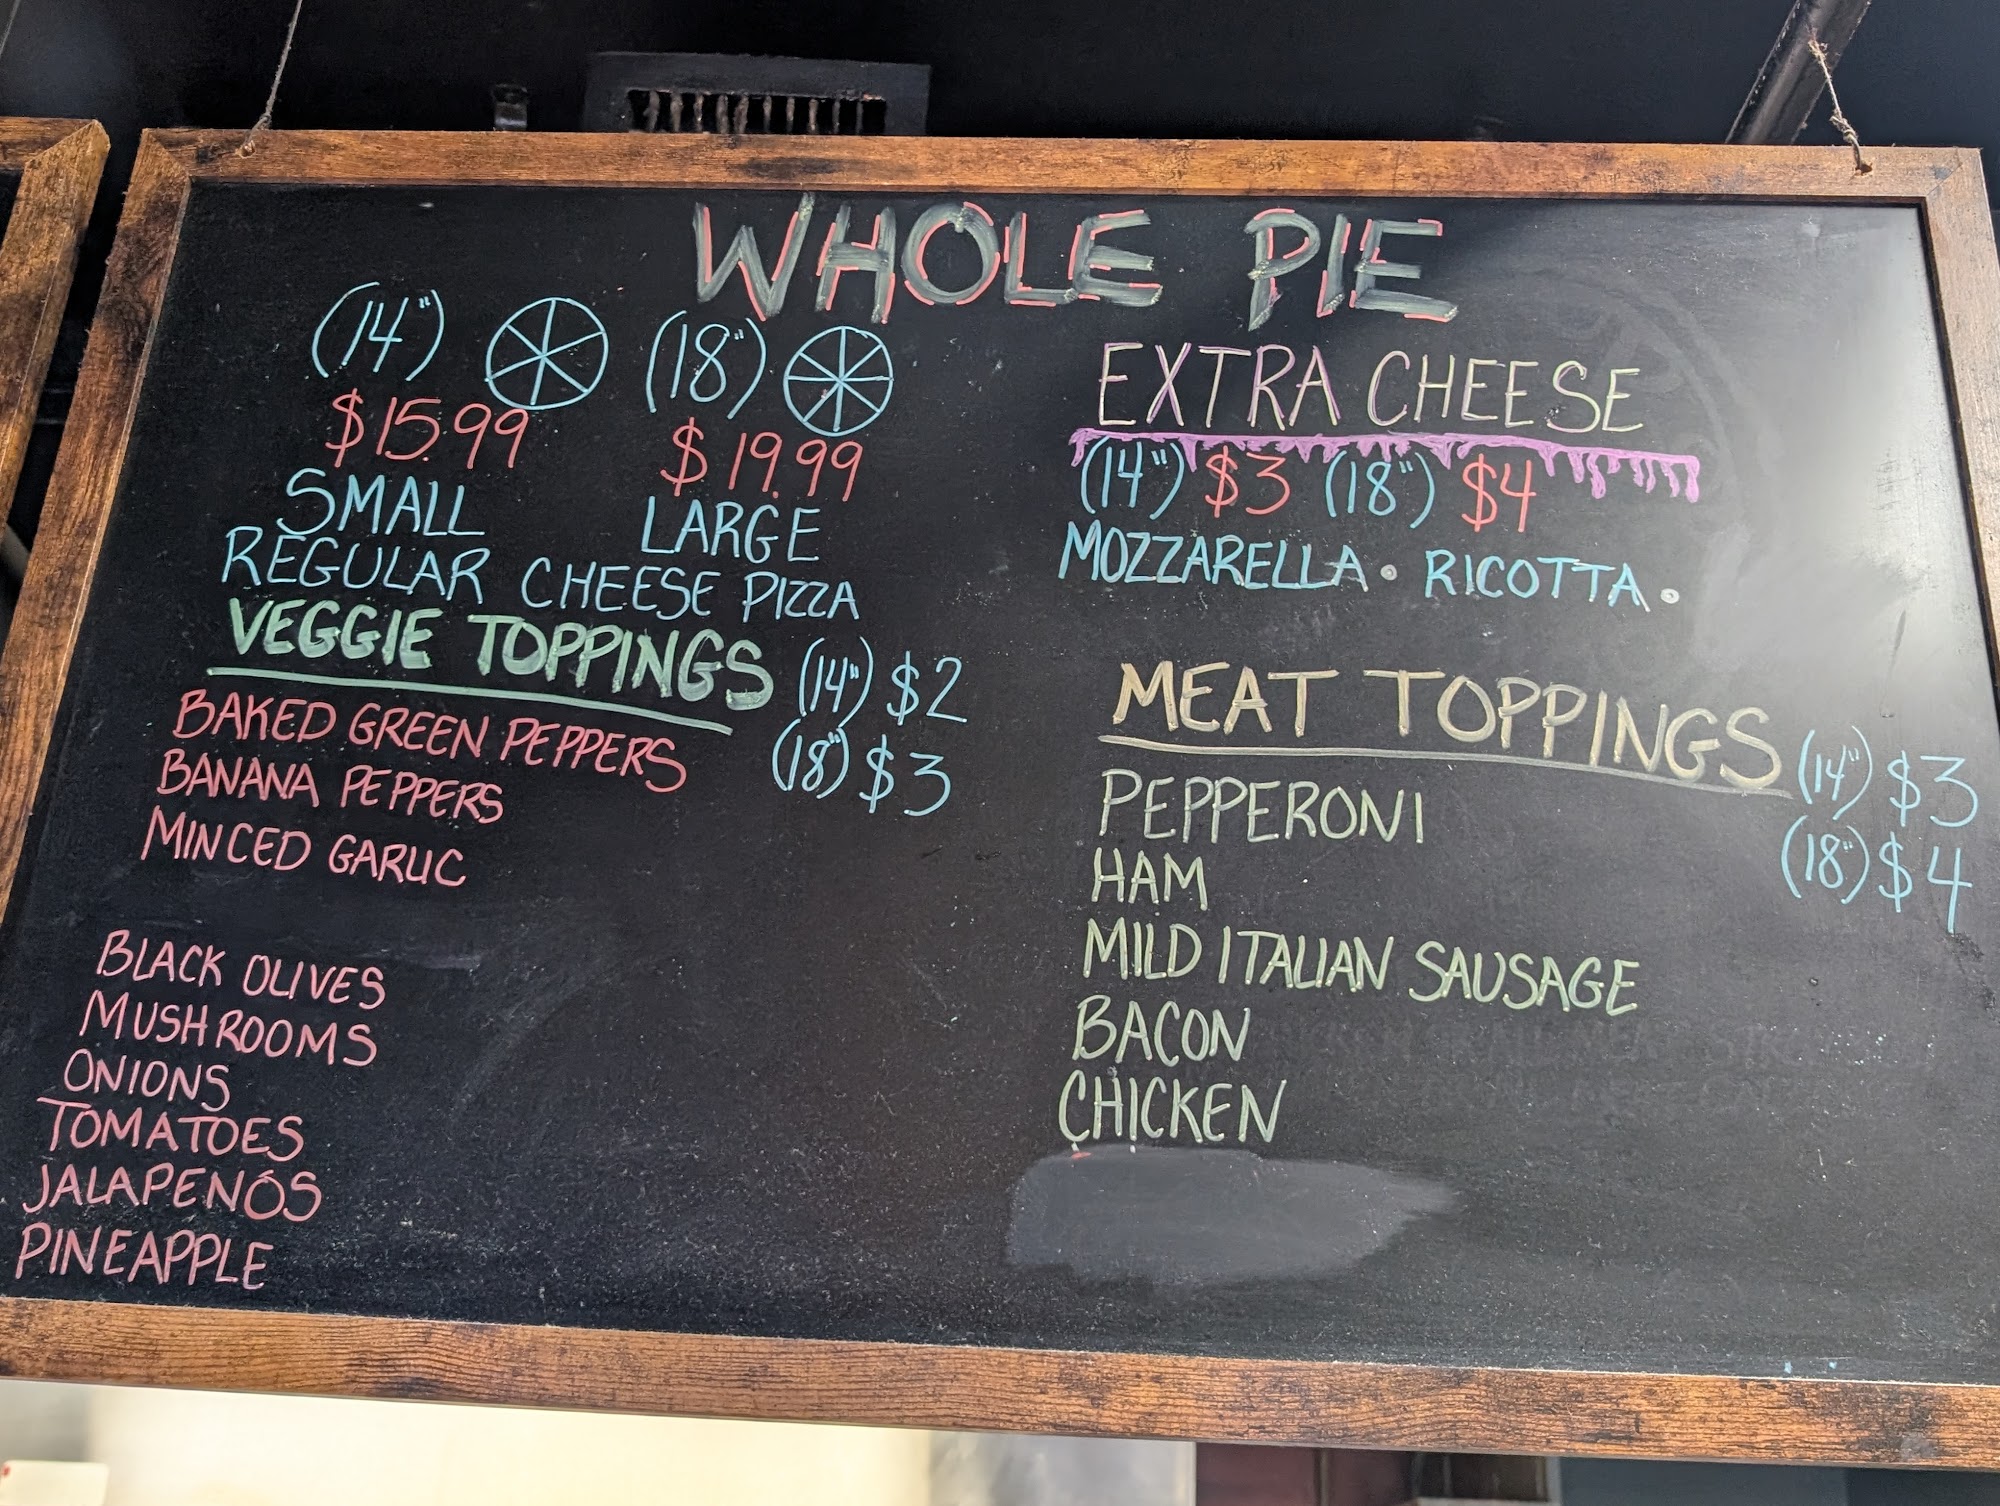 WHOLE PIE
(14") (18")
$15.99 $19.99
SMALL LARGE
REGULAR CHEESE PIZZA
VEGGIE TOPPINGS (14") $2
(18") $3
BAKED GREEN PEPPERS
BANANA PEPPERS
MINCED GARLIC
BLACK OLIVES
MUSHROOMS
ONIONS
TOMATOES
JALAPENOS
PINEAPPLE
EXTRA CHEESE
(14") $3 (18") $4
MOZZARELLA • RICOTTA •
MEAT TOPPINGS (14") $3
(18") $4
PEPPERONI
HAM
MILD ITALIAN SAUSAGE
BACON
CHICKEN